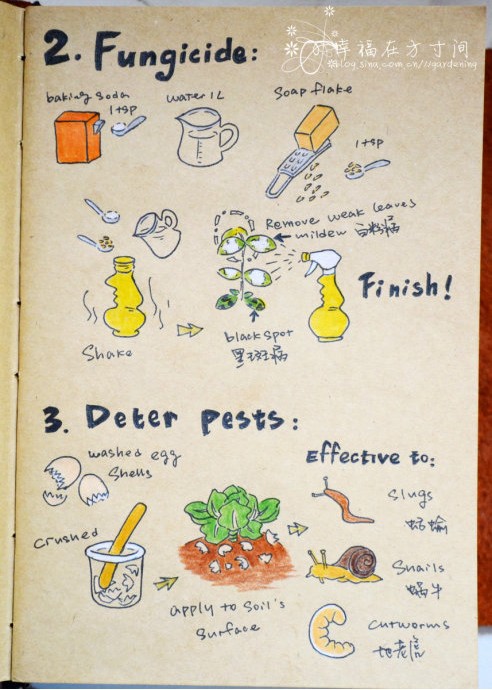 幸福在方寸间
blog.sina.com.cn/igardening
2. Fungicide:
baking soda
1 tsp
water 1L
Soap flake
1 tsp
Remove weak leaves
mildew 白粉病
Finish!
black spot
黑斑病
Shake
3. Deter pests:
washed egg
Shells
Effective to:
Slugs
蛞蝓
crushed
Snails
蜗牛
apply to soil's
surface
cutworms
地老虎